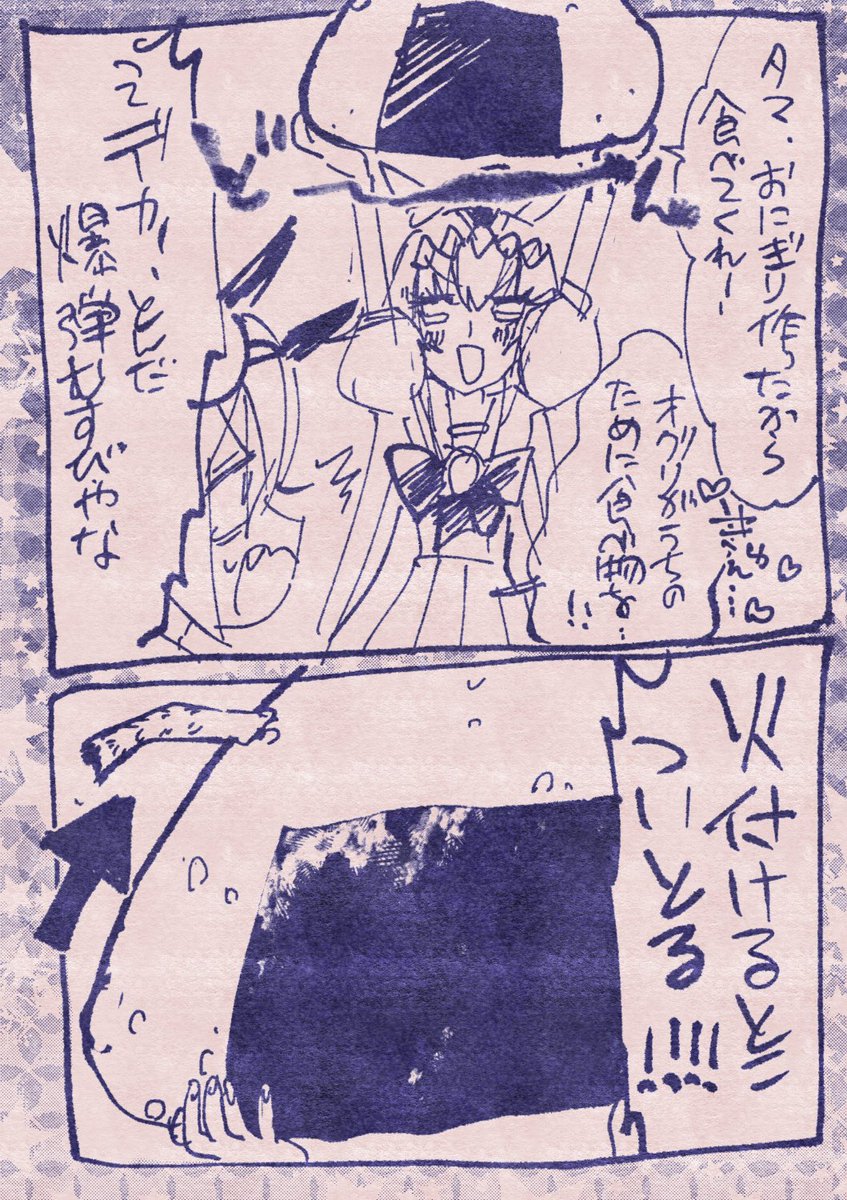 タマ、おにぎり作ったから
食べてくれー
オグリがうちの
ために食い物を…
!!
ど
ん
ってデカ、とんだ
爆弾むすびやな
火付けるとこ
ついとる!!!!